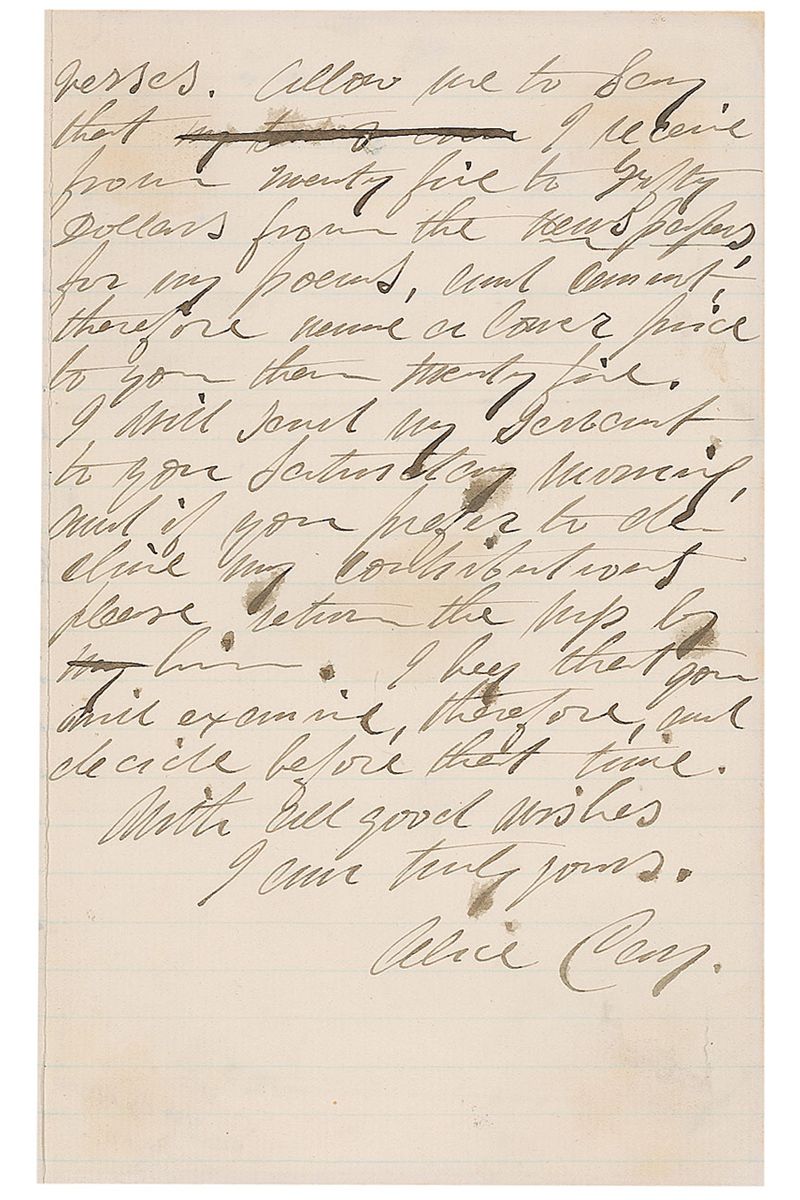 verses. Allow me to say
that my terms are I receive
from twenty five to fifty
Dollars from the newspapers,
for my poems, and cannot,
therefore name a lower price
to you than twenty five.
I will send my servant
to you Saturday morning,
and if you prefer to de-
cline my contributions
please return the mss by
my him. I beg that you
will examine, therefore, and
decide before that time.
With all good wishes
I am truly yours.
Alice Cary.